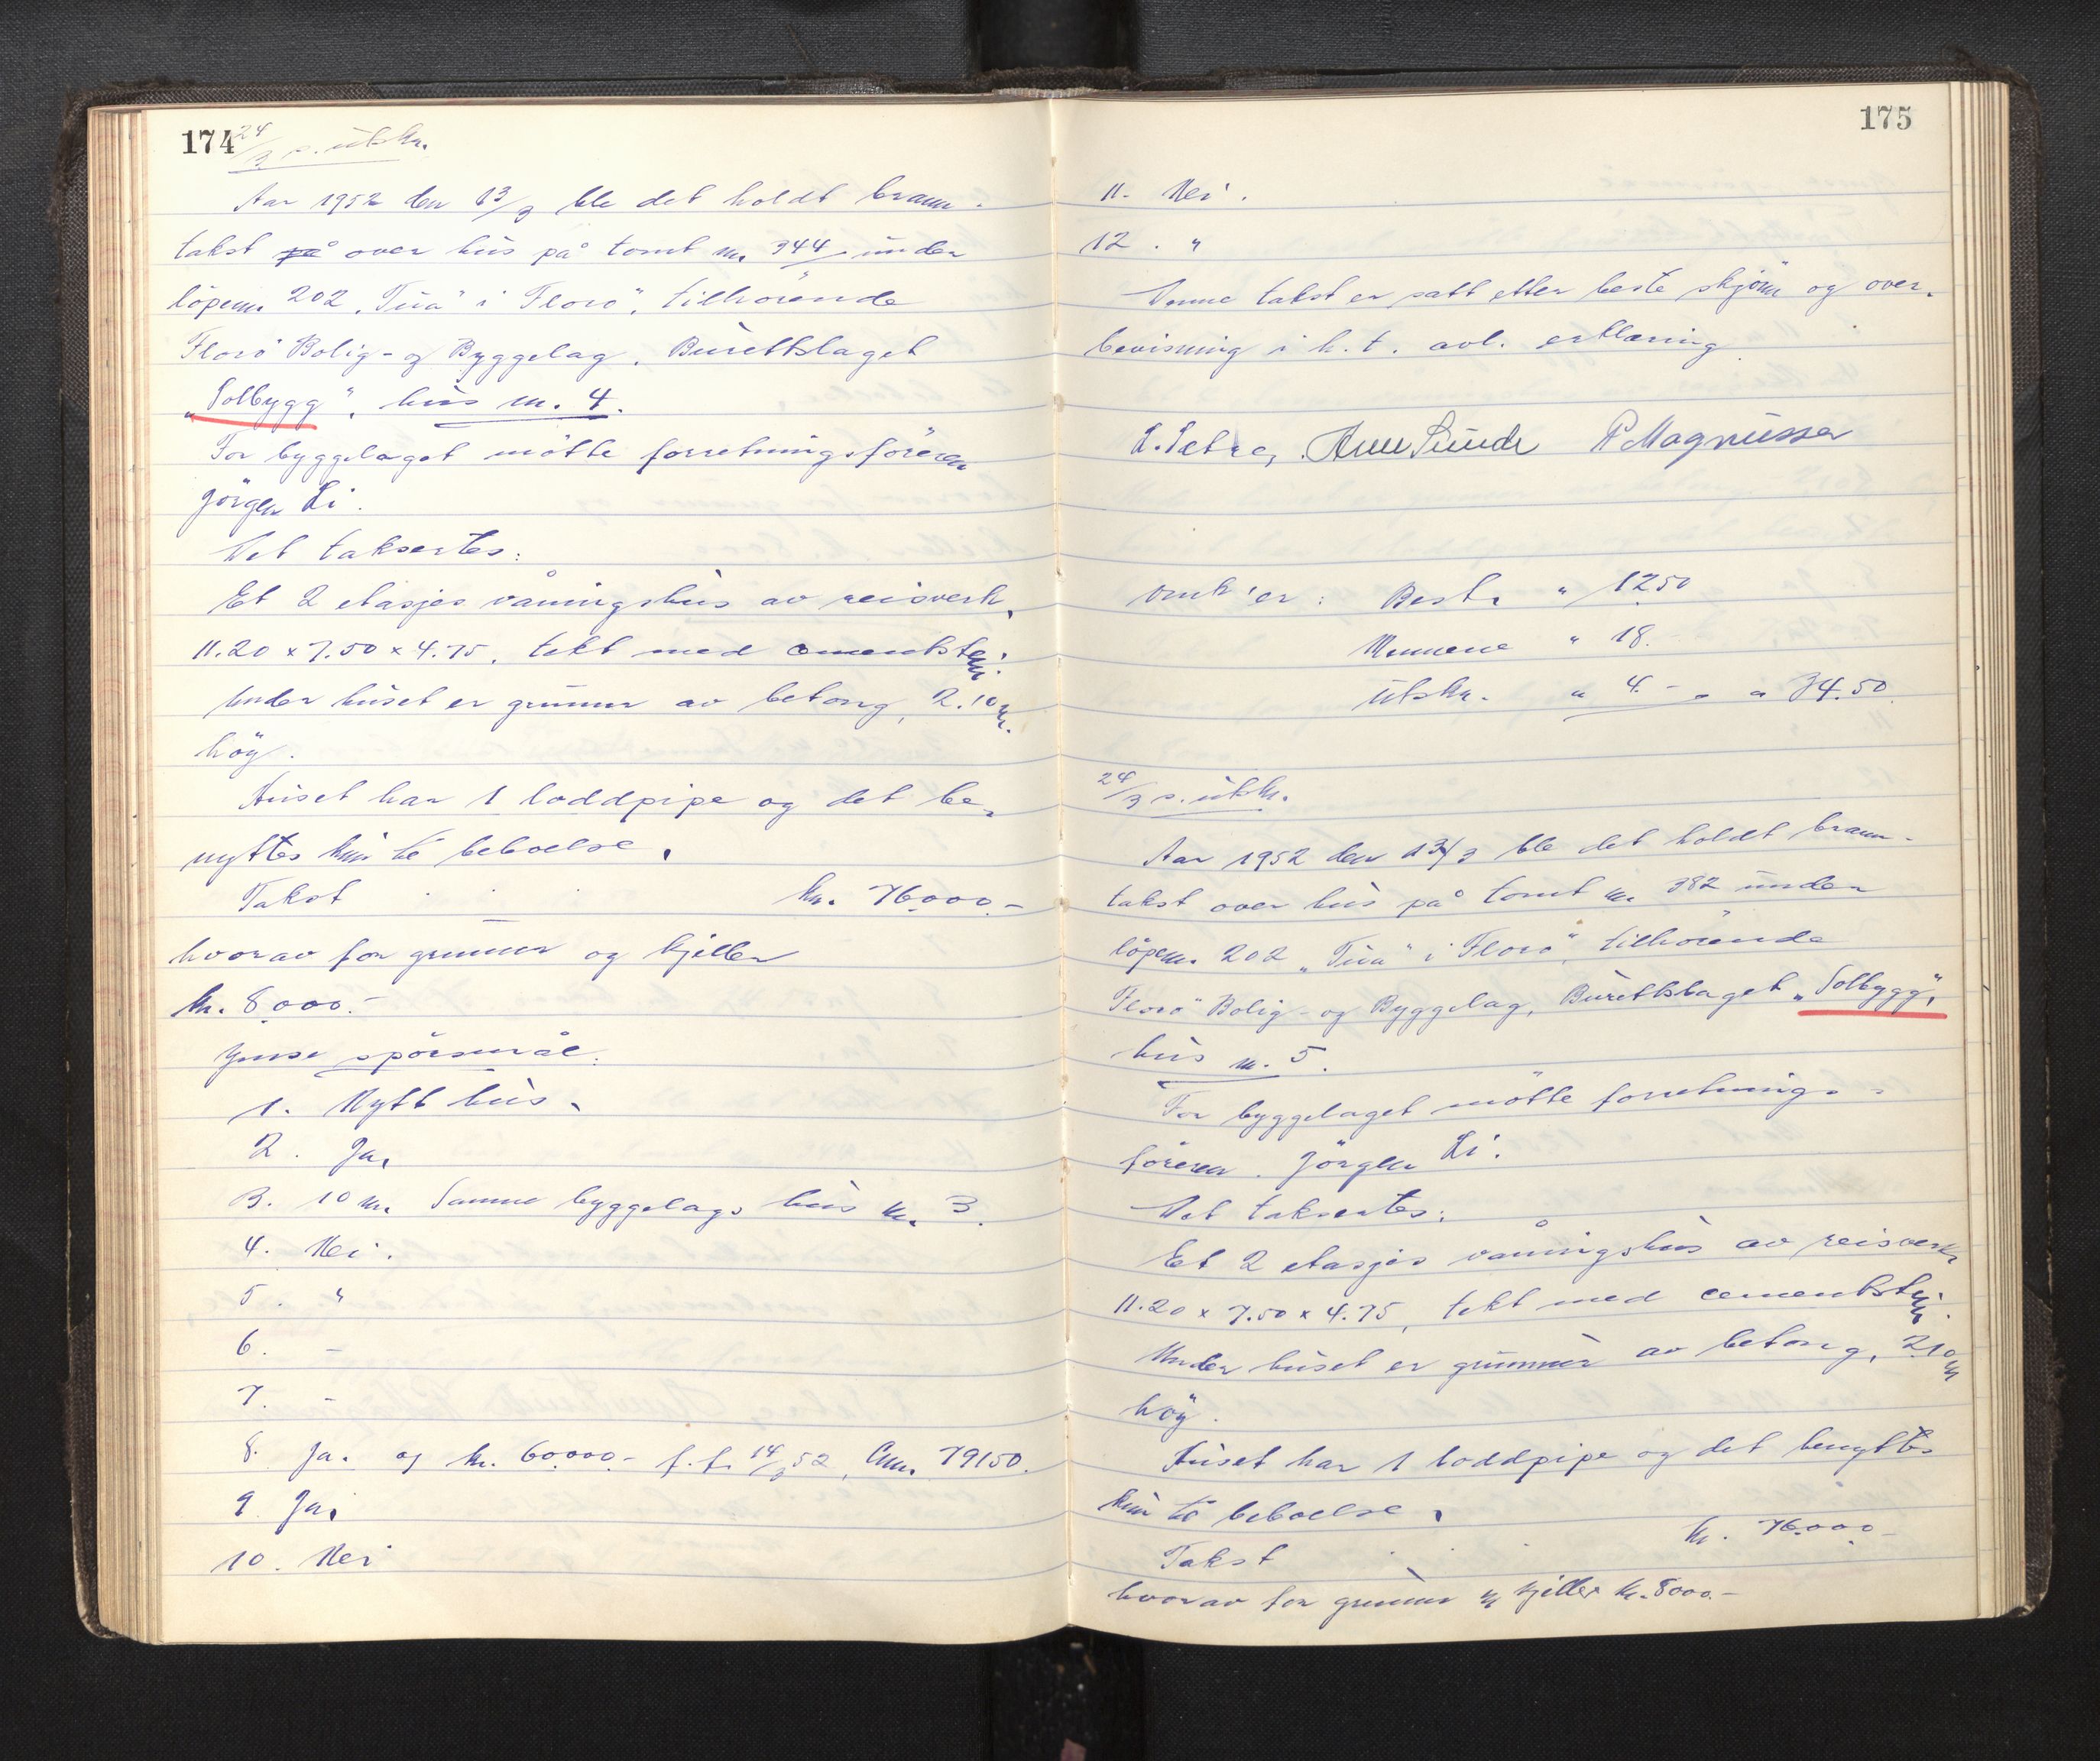 174
24/3 s. utskr.
Aar 1952 den 13/3 ble det holdt brann-
takst på over hus på tomt nr. 344 under
löpenr. 202 „Tua" i Florö, tilhörende
Florö Bolig- og Byggelag, Burettslaget
„Solbygg", hus nr. 4.
For byggelaget mötte forretningsföreren
Jörgen Li.
Det taksertes:
Et 2 etasjes våningshus av reisverk,
11.20 x 7.50 x 4.75, tekt med cementstein.
Under huset er grunnur av betong, 2.10 m.
höy.
Huset har 1 loddpipe og det be-
nyttes kun til beboelse.
Takst . . . kr. 76000.-
hvorav for grunnur og kjeller
kr. 8000.-
Ymse spörsmål:
1. Nytt hus.
2. Ja.
3. 10 m. Samme byggelags hus nr. 3.
4. Nei.
5. "
6. -
7. -
8. Ja. og kr. 60000.- f.f. 14/3 52, 79150.
9 Ja.
10. Nei
175
11. Nei.
12. "
Denne takst er satt etter beste skjönn og over-
bevisning i h. t. avl. erklæring.
L. Sætre, Arne Sunde P Magnussen
Omk'er: Best. " 12.50
Mennene " 18.
Utskr. " 4.- " 34.50
24/3 s. utskr.
Aar 1952 den 13/3 ble det holdt brann-
takst over hus på tomt nr. 382 under
löpenr. 202 „Tua" i Florö, tilhörende
Florö Bolig- og Byggelag, Burettslaget „Solbygg",
hus nr. 5.
For byggelaget mötte forretnings-
föreren Jörgen Li.
Det taksertes:
Et 2 etasjes våningshus av reisverk
11.20 x 7.50 x 4.75, tekt med cementstein.
Under huset er grunnur av betong, 2.10 m
höy.
Huset har 1 loddpipe og det benyttes
kun til beboelse.
Takst . . . kr. 76000.-
hvorav for grunnur og kjeller kr. 8000.-